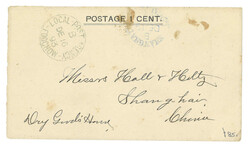 POSTAGE 1 CENT.
LOCAL POST
Messrs Hall & Holtz
Shanghai
China
Dry Goods House